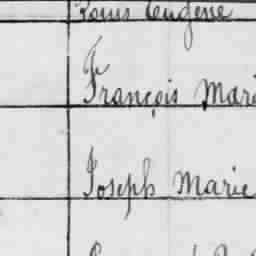 Louis Eugène
François Mari
Joseph Marie